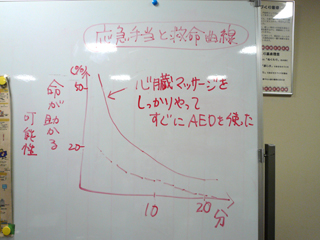 応急手当と救命曲線
(%)
50
20
命が助かる
可能性
心臓マッサージを
しっかりやって
すぐにAEDを使った
10
20
分